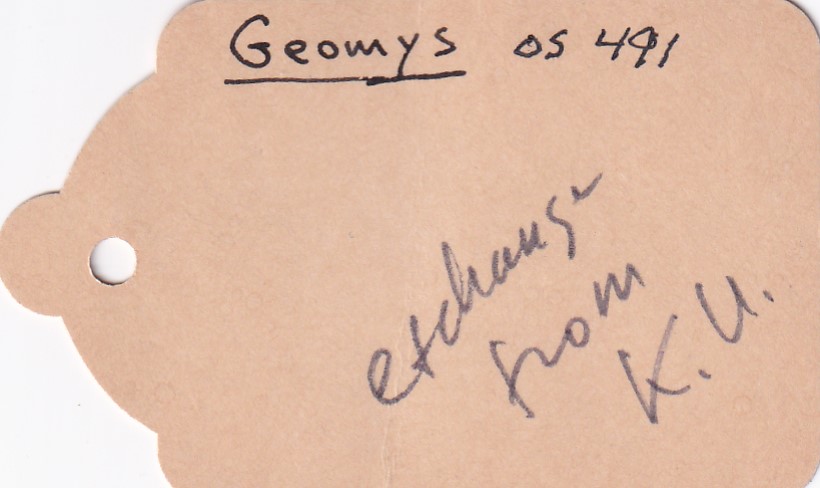 Geomys OS 491
exchange
from
K.U.